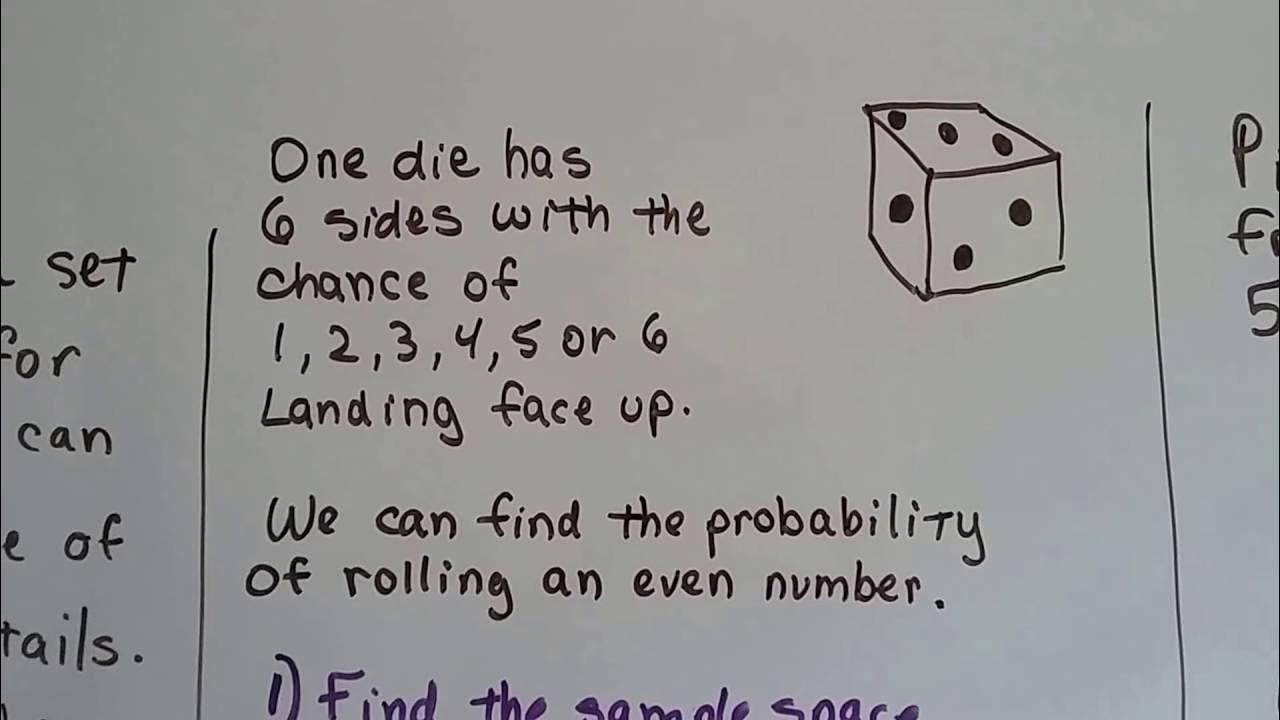 set
for
can
e of
tails.
One die has
6 sides with the
chance of
1, 2, 3, 4, 5 or 6
Landing face up.
We can find the probability
of rolling an even number.
1) Find the sample space
P
fo
5